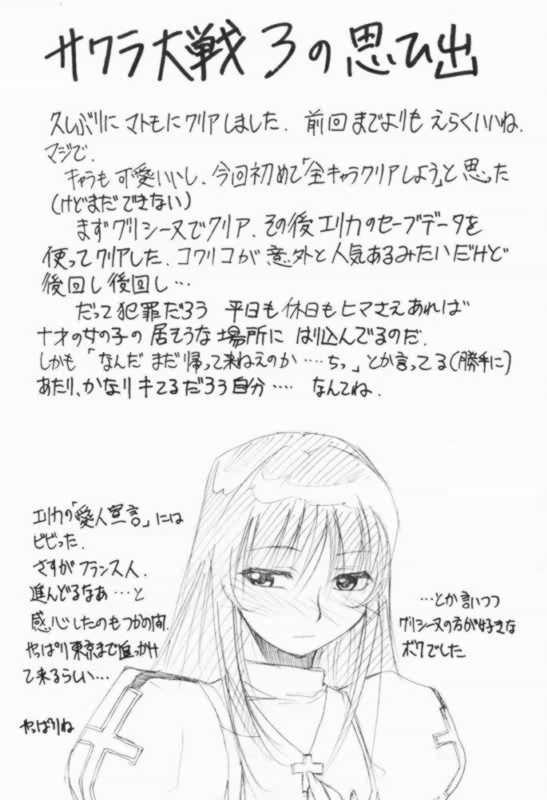 サクラ大戦3の思ひ出
久しぶりにマトモにクリアしました. 前回までよりもえらくいいね.
マジで.
キャラも可愛いし、今回初めて「全キャラクリアしよう」と思った
(けどまだできない)
まずグリシーヌでクリア、その後エリカのセーブデータを
使ってクリアした. コクリコが意外と人気あるみたいだけど
後回し後回し…
だって犯罪だろう 平日も休日もヒマさえあれば
十才の女の子の居そうな場所に はり込んでるのだ.
しかも「なんだ まだ帰って来ねえのか……ちっ」とか言ってる(勝手に)
あたり、かなりキてるだろう自分…… なんてね.
エリカの「愛人宣言」には
ビビった.
さすがフランス人.
進んどるなあ…と
感心したのもつかの間.
やっぱり東京まで追っかけ
て来るらしい…
やっぱりね
…とか言いつつ
グリシーヌの方が好きな
ボクでした